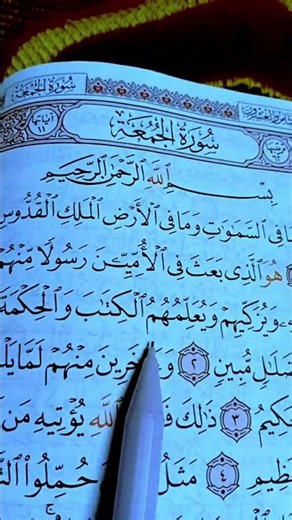 سُورَةُ الجُمُعَةِ
سُورَةُ الجُمُعَةِ
آياتها ١١
بِسْمِ اللَّهِ الرَّحْمَٰنِ الرَّحِيمِ
فِي السَّمَٰوَٰتِ وَمَا فِي الْأَرْضِ الْمَلِكِ الْقُدُّوسِ
هُوَ الَّذِي بَعَثَ فِي الْأُمِّيِّـۧنَ رَسُولًا مِّنْهُمْ
وَيُزَكِّيهِمْ وَيُعَلِّمُهُمُ الْكِتَٰبَ وَالْحِكْمَةَ
ضَلَٰلٍ مُّبِينٍ ٢ مِنْهُمْ لَمَّا
٣ ذَٰلِكَ اللَّهِ يُؤْتِيهِ مَن
٤ مَثَلُ حُمِّلُوا